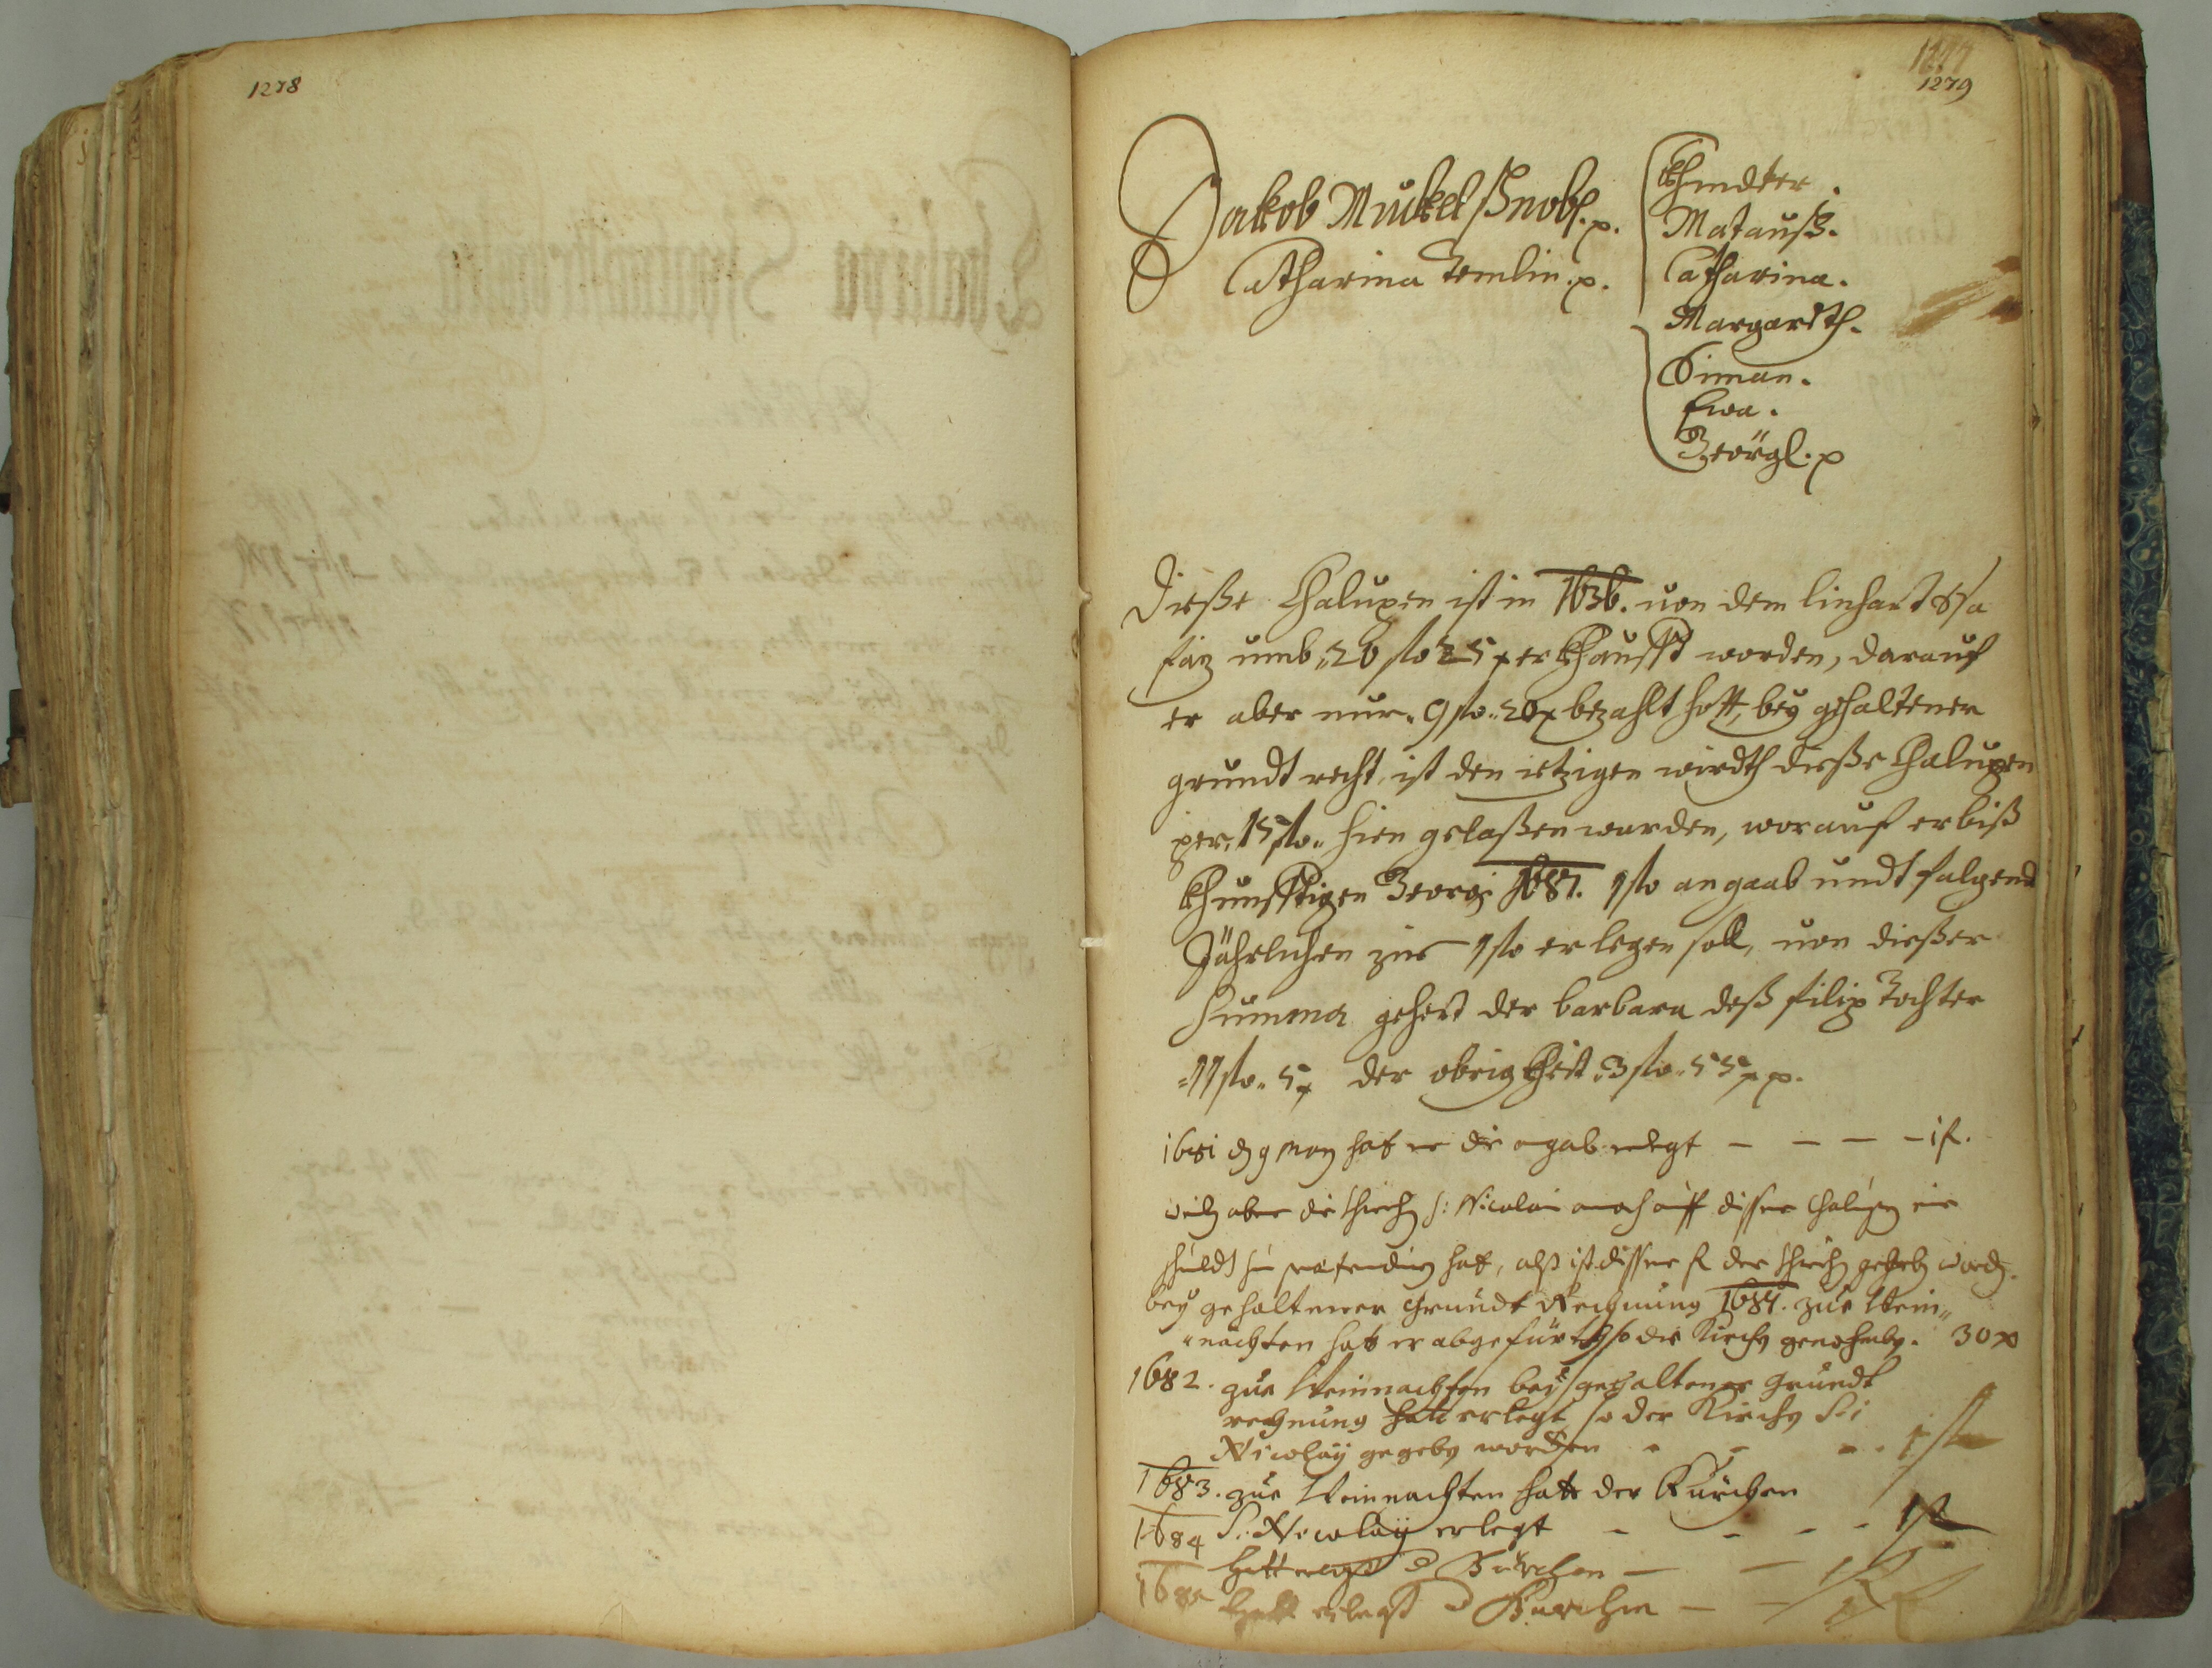 1278
1279
Jakob Muckel Snobl. p.
Catharina Femlin. p.
Khindter.
Matauß.
Catharina.
Margareth.
Siman.
Ewa.
Geörgl. p
Dieße Chalupen ist in 1636. von dem linhart
umb 26 ßo 25 x erkhaufft worden, darauf
er aber nur 9 ßo 20 x bezahlt hatt, bey gehaltener
grundt recht, ist den ietzigen wirdth dieße Chalupen
per 15 ßo hien gelaßen warden, worauf er biß
khunfftigen Georgi 1681. 1 ßo angaab undt falgend
Jährlichen zur 1 ßo erlegen soll, von dießer
Summa gehert der barbara deß filip Tochter
11 ßo 5 x der obrigkheit 3 ßo 55 x p.
1681 d 9 May hat er die agab erlegt - - - - 1 f.
weiln aber die khirchn S: Nicolai auff disser Chalupen
schuldt hat, alß ist disser f der khirchn geben wordn.
bey gehaltener Grundt Rechnung 1681. zue Wein-
nachten hatt er abgefürth so die Kirchn 30 x
1682. zue Weinnachten bey gehaltener grundt
rechnung hatt erlegt so der Kirchn S:
Nicolay gegebn worden - - - 1 ß
1683. zue Weinnachten hatt der Kürchen
S: Nicolay erlegt - - - - 1 ß
1684 hatt erlegt d Kürchen - - 1 f
1685 hatt erlegt d Kürchen - - 1 f